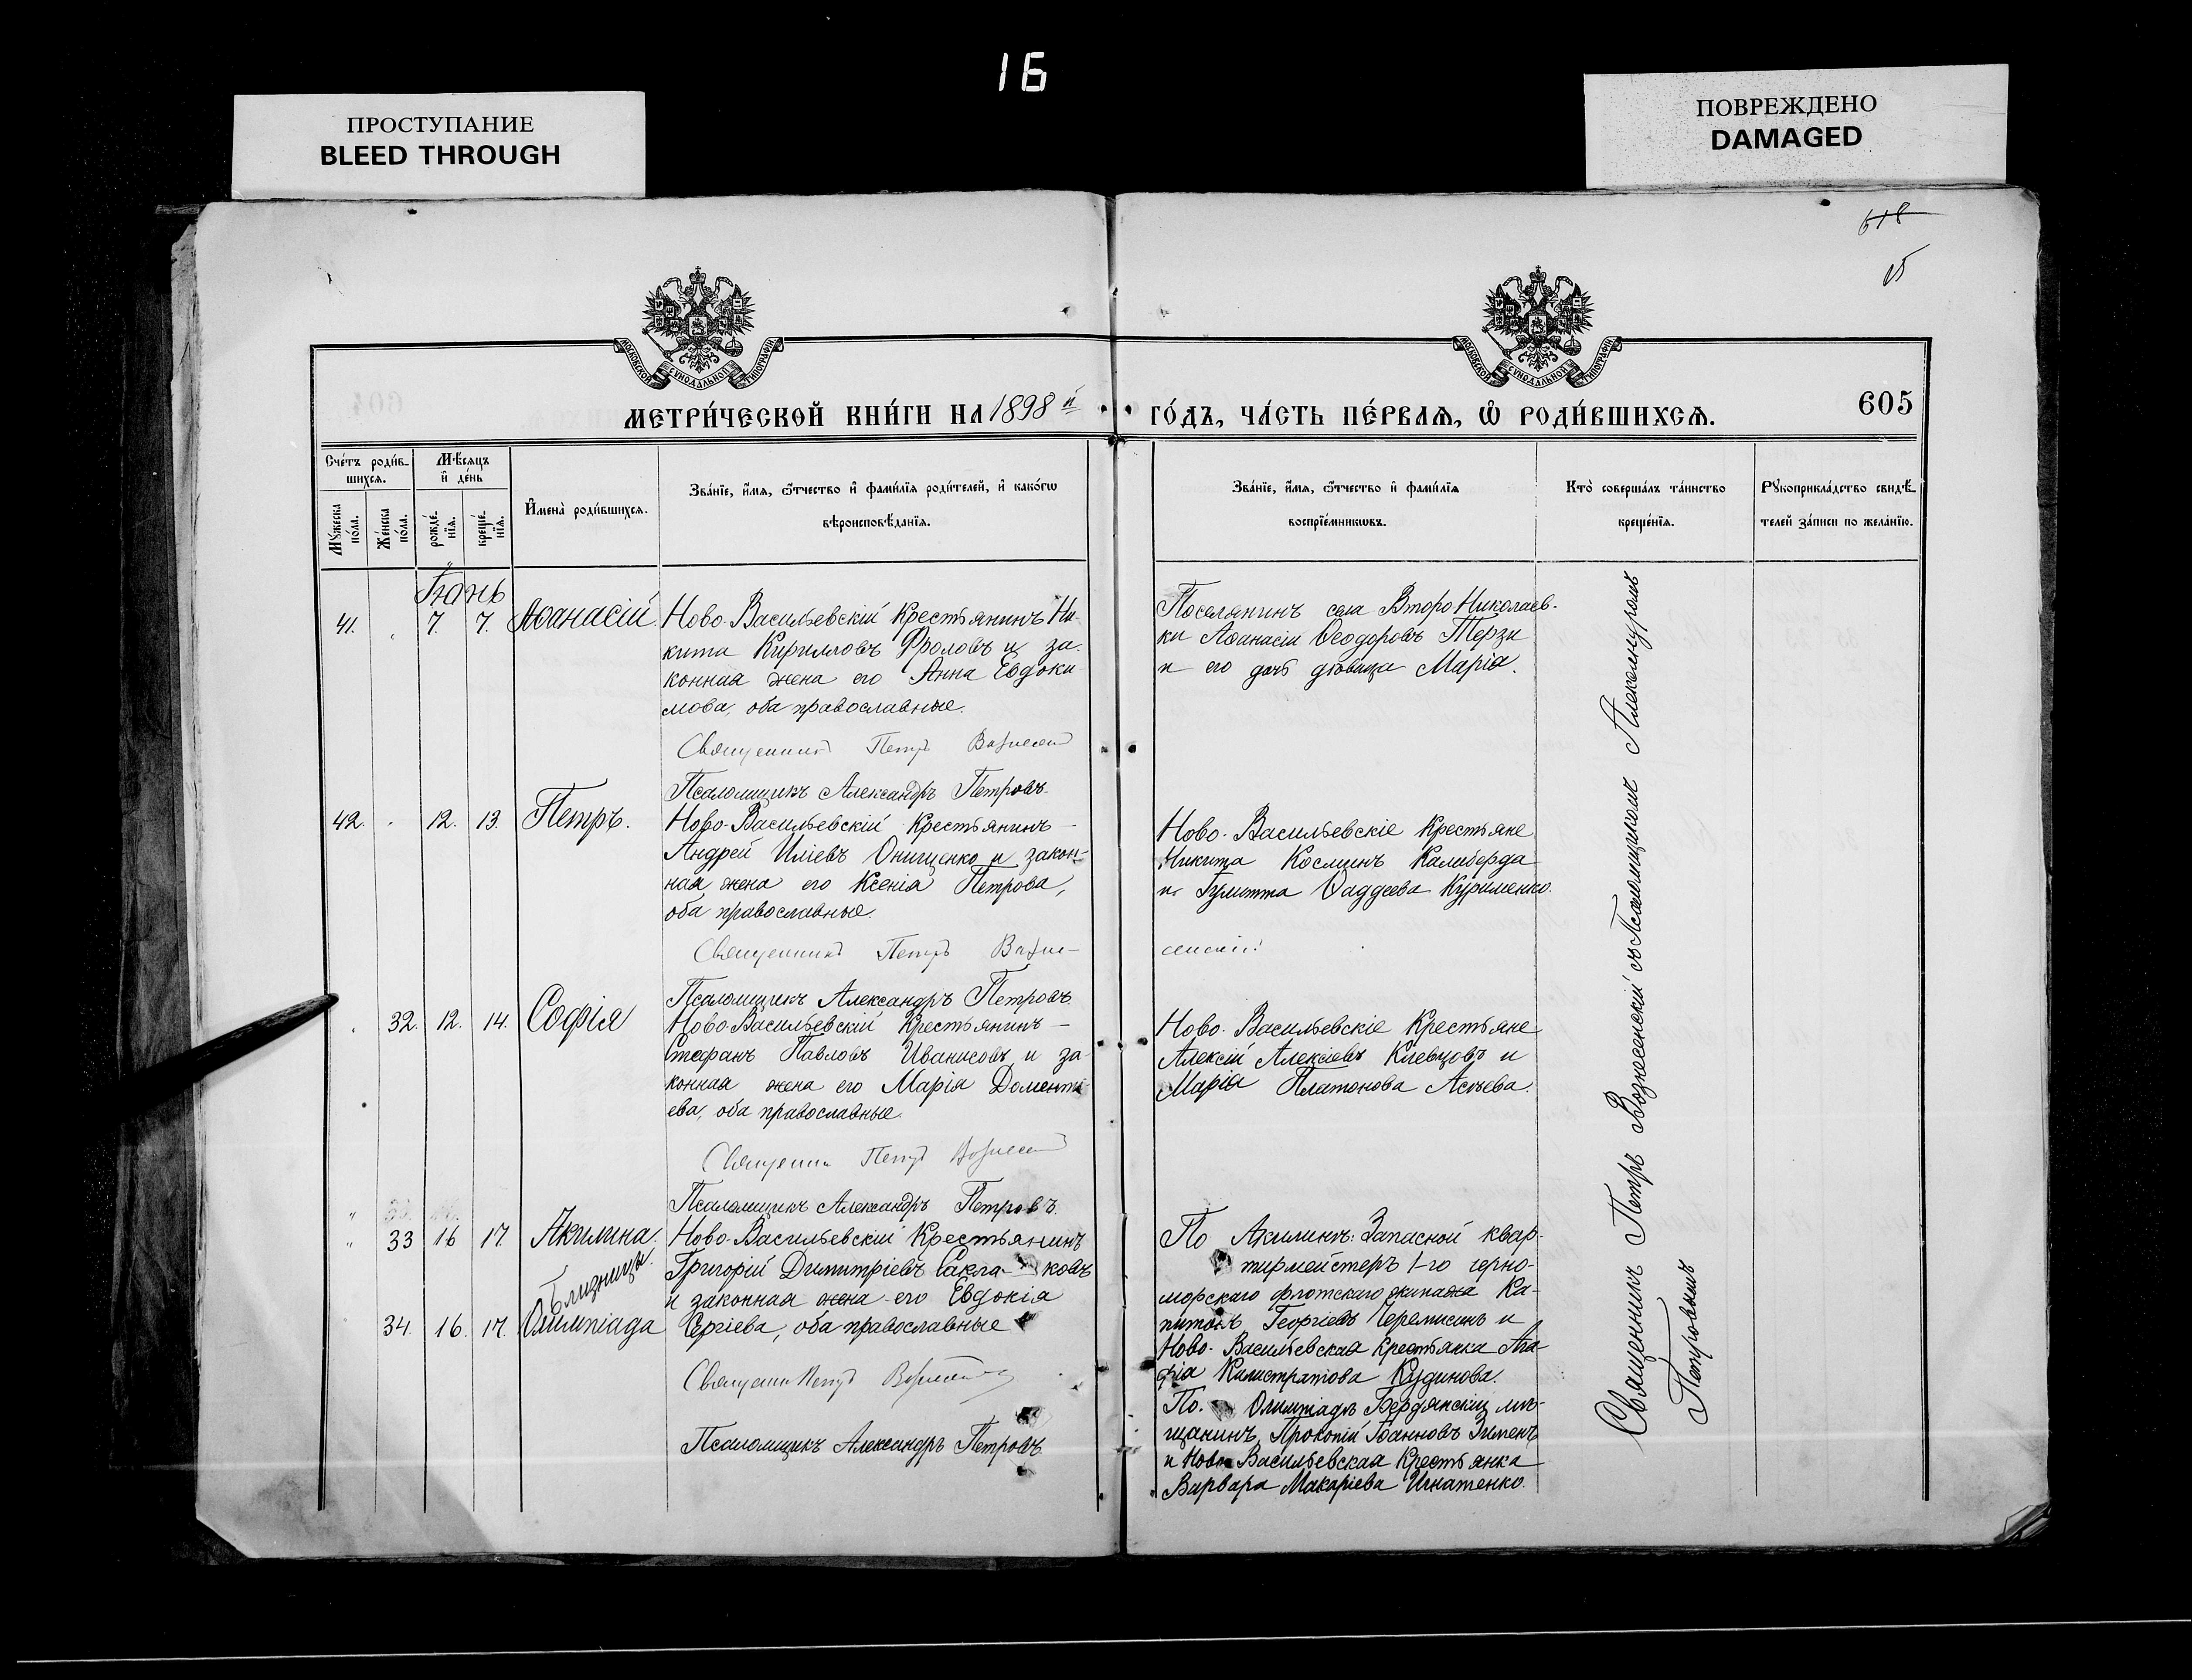 16
ПРОСТУПАНИЕ
BLEED THROUGH
ПОВРЕЖДЕНО
DAMAGED
618
15
МОСКОВСКОЙ СУНОДАЛЬНОЙ ТИПОГРАФІИ
МОСКОВСКОЙ СУНОДАЛЬНОЙ ТИПОГРАФІИ
МЕТРИ́ЧЕСКОЙ КНИ́ГИ НА 1898 й
ГО́ДЪ, ЧА́СТЬ ПЕ́РВАѦ, Ѽ РОДИ́ВШИХСѦ.
605
Сче́тъ роди́в-
шихсѧ.
Мѣ́сѧцъ
и҆ де́нь
Мꙋ́жеска
по́ла.
Же́нска
по́ла.
рожде́-
нїѧ.
креще́-
нїѧ.
И҆мена̀ роди́вшихсѧ.
Зва́нїе, и҆́мѧ, ѻ҆́тчество и҆ фами́лїѧ роди́телей, и҆ како́гѡ
вѣроисповѣ́данїѧ.
Зва́нїе, и҆́мѧ, ѻ҆́тчество и҆ фами́лїѧ
воспрїе́мникѡвъ.
Кто̀ соверша́лъ та́инство
креще́нїѧ.
Рꙋкоприкла́дство свидѣ́-
телей за́писи по жела́нїю.
Іюнь
41. 7. 7. Аѳанасій. Ново-Васильевскій Крестьянинъ Ни-
кита Кирилловъ Фроловъ и за-
конная жена его Анна Евдоки-
мова, оба православные.
Священникъ Петръ Вознесен
Псаломщикъ Александръ Петровъ.
Поселянинъ села Второ Николаев-
ки Аѳанасій Ѳеодоровъ Терзи
и его дочь дѣвица Марія.
42. 12. 13. Петръ. Ново-Васильевскій Крестьянинъ
Андрей Иліевъ Онищенко и закон-
ная жена его Ксенія Петрова,
оба православные.
Священникъ Петръ Возне-
сенскій
Псаломщикъ Александръ Петровъ.
Ново-Васильевскіе Крестьяне
Никита Косминъ Калиберда
и Іулитта Ѳаддеева Куриленко.
32. 12. 14. Софія Ново-Васильевскій Крестьянинъ
Стефанъ Павловъ Иванисовъ и за-
конная жена его Марія Доменті-
ева, оба православные.
Священни Петръ Вознесен
Псаломщикъ Александръ Петровъ.
Ново-Васильевскіе Крестьяне
Алексій Алексіевъ Клевцовъ и
Марія Платонова Асѣева.
33 16 17. Акилина. Ново-Васильевскій Крестьянинъ
близницы.
Григорій Димитріевъ Сакла-ковъ
и законная жена его Евдокія
34. 16. 17. Олимпіада Сергіева, оба православные
Священни Петръ Вознесен
Псаломщикъ Александръ Петровъ.
По Акилинѣ: Запасной квар-
тирмейстеръ 1-го черно-
морскаго флотскаго экипажа Ка-
питонъ Георгіевъ Черемисинъ и
Ново-Васильевская Крестьянка Ага-
фія Калистратова Кудинова.
По. Олимпіадѣ Бердянскій мѣ-
щанинъ Прокопій Іоанновъ Зименъ
и Ново Васильевская Крестьянка
Варвара Макаріева Игнатенко.
Священникъ Петръ Вознесенскій съ Псаломщикомъ Александромъ
Петровымъ